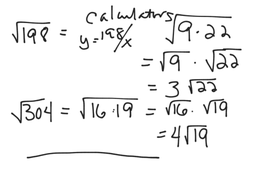 calculators
√198 = y=198/x √9·22
= √9 · √22
= 3 √22
√304 = √16·19 = √16 · √19
= 4√19